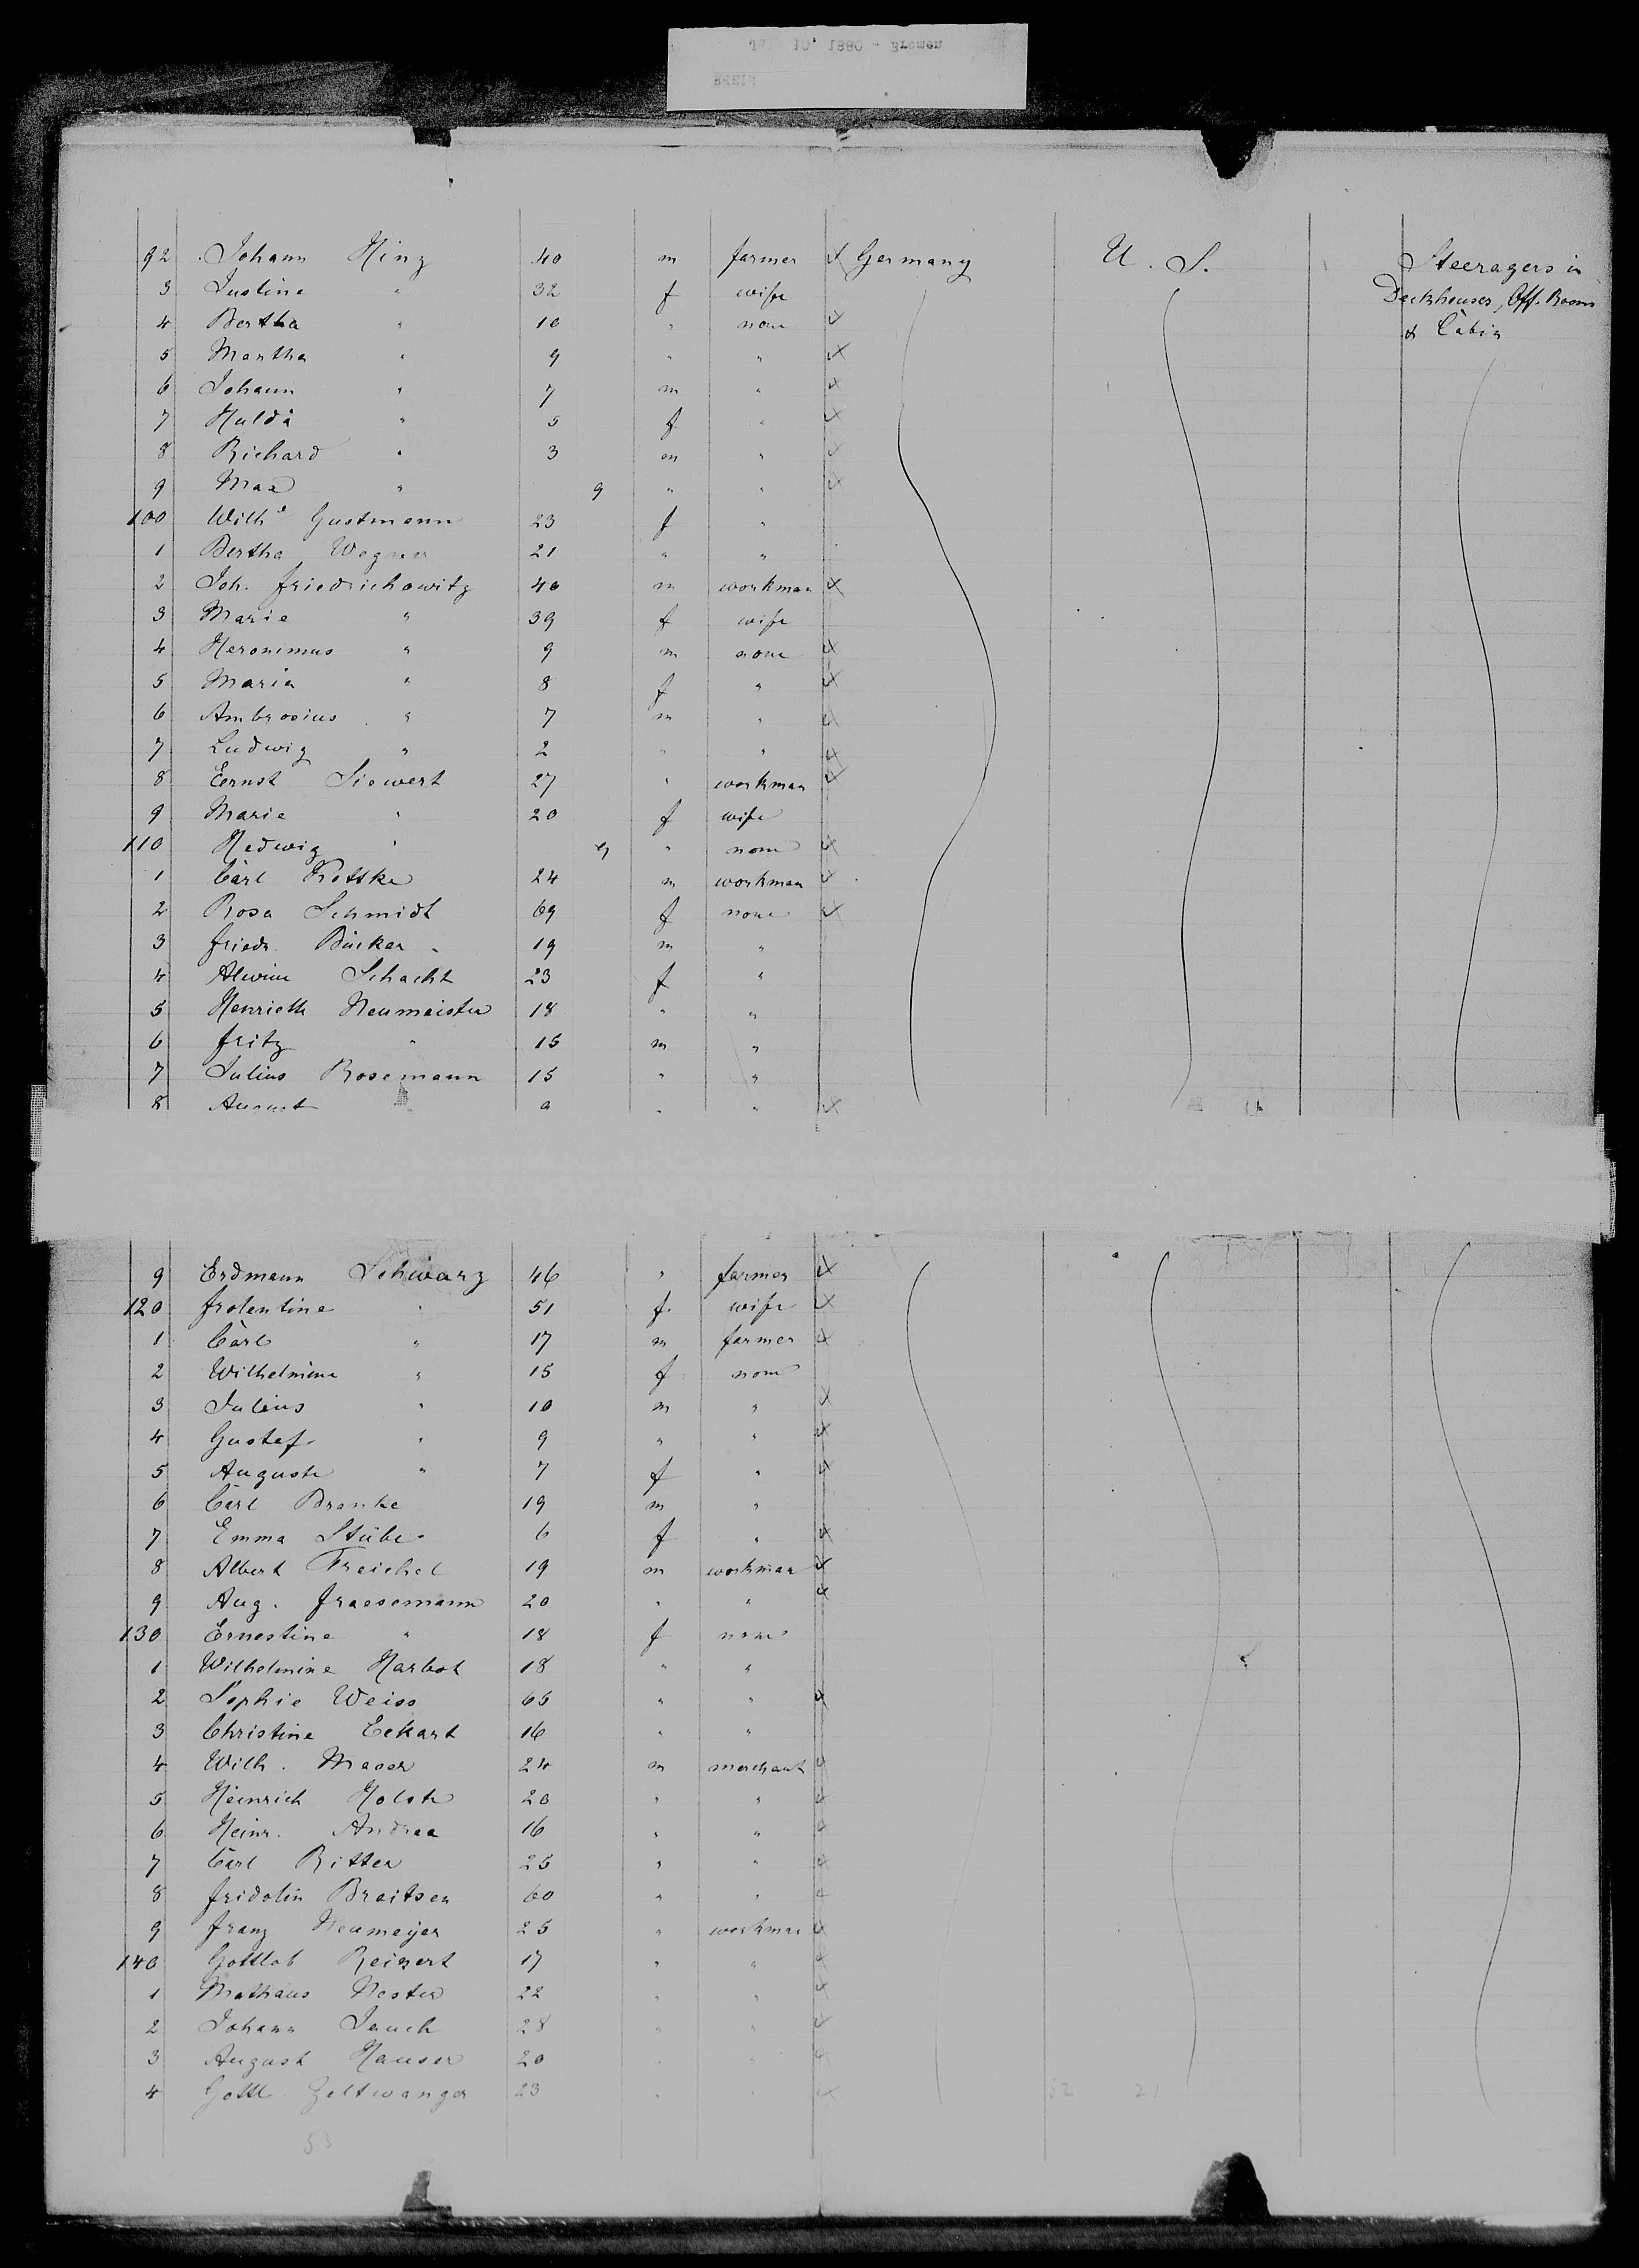 92 Johann Hinz 40 m farmer Germany U. S. Steeragers in
3 Justine " 32 f wife Deckhouses, Off. Rooms
4 Bertha " 10 " none & Cabin
5 Martha " 9 " "
6 Johann " 7 m "
7 Hulda " 5 f "
8 Richard " 3 m "
9 Max " 9 " "
100 Wilhe Gustmann 23 f "
1 Bertha Wegner 21 " "
2 Joh. Friedrichowitz 40 m workman
3 Marie " 39 f wife
4 Heronimus " 9 m none
5 Maria " 8 f "
6 Ambrosius " 7 m "
7 Ludwig " 2 " "
8 Ernst Siewert 27 " workman
9 Marie " 20 f wife
110 Hedwig " " none
1 Carl Kottke 24 m workman
2 Rosa Schmidt 69 f none
3 Friedr. Bücker 19 m "
4 Alwine Schacht 23 f "
5 Henriette Neumeister 18 " "
6 Fritz " 15 m "
7 Julius Rosemann 15 " "
8 August " "
9 Erdmann Schwarz 46 " farmer
120 Frolentine " 51 f. wife
1 Carl " 17 m farmer
2 Wilhelmine " 15 f none
3 Julius " 10 m "
4 Gustaf " 9 " "
5 Auguste " 7 f "
6 Carl Branke 19 m "
7 Emma Stübe 6 f "
8 Albert Treichel 19 m workman
9 Aug. Fraesemann 20 " "
130 Ernestine " 18 f none
1 Wilhelmine Harbot 18 " "
2 Sophie Weiss 65 " "
3 Christine Eckart 16 " "
4 Wilh. Maser 24 m merchant
5 Heinrich Holste 20 " "
6 Heinr. Andrea 16 " "
7 Carl Ritter 25 " "
8 Fridolin Braitsen 60 " "
9 Franz Neumeijer 25 " workman
140 Gottlob Reinert 17 " "
1 Mathaus Nester 22 " "
2 Johann Jauch 28 " "
3 August Hauser 20 " "
4 Gottl. Zeltwanger 23 " " 32 21
53